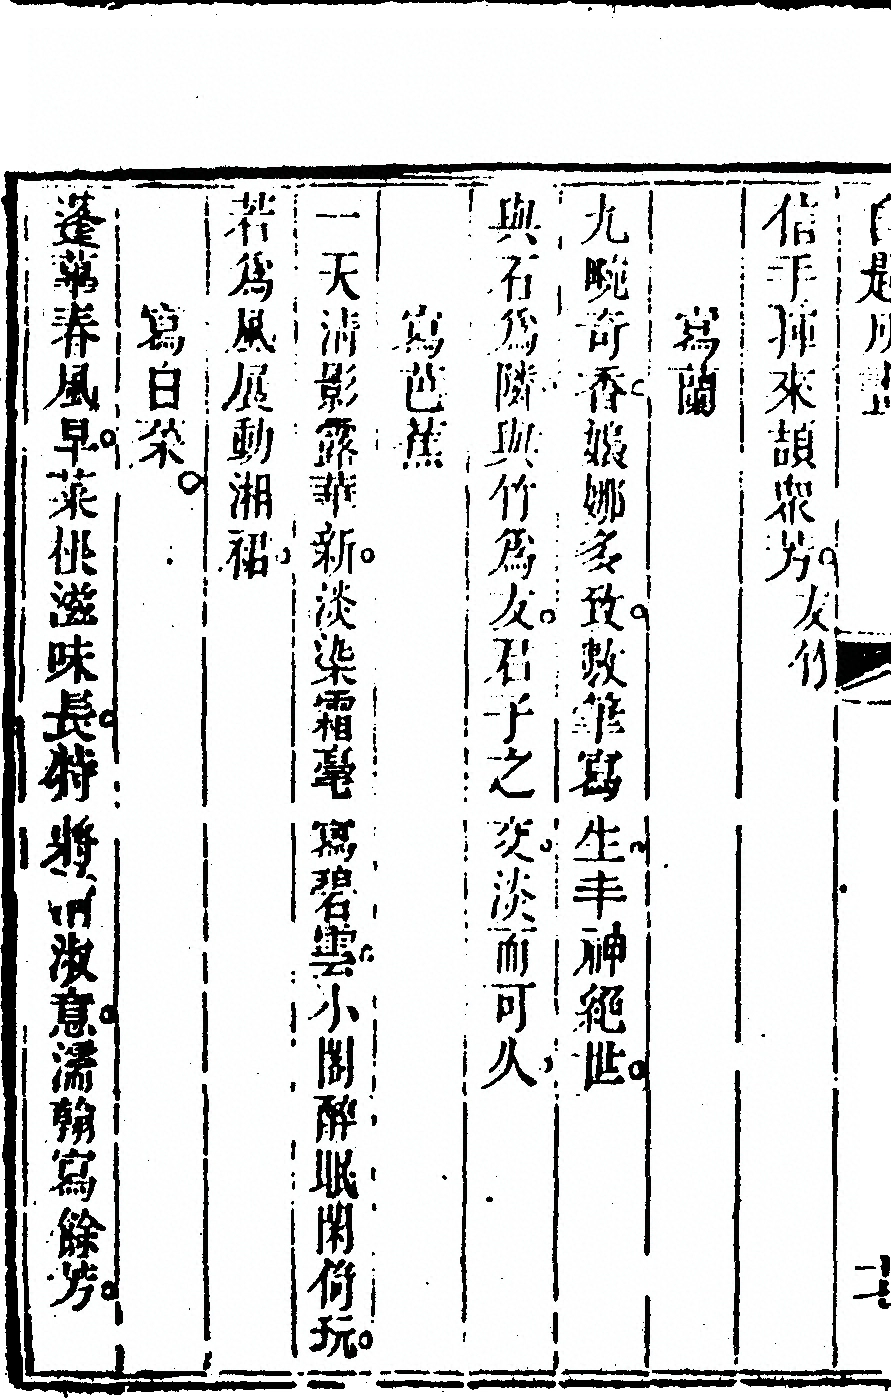 信手揮來頡眾芳友竹
寫蘭
九畹奇香嫋娜多致數筆寫生丰神絕世
與石為隣與竹為友君子之交淡而可久
寫芭蕉
一天清影露華新淡染霜毫寫碧雲小閣醉眠閑倚玩
若為風展動湘裙
寫白菜
蓬蓽春風早菜根滋味長特將淑意濡翰寫餘芳